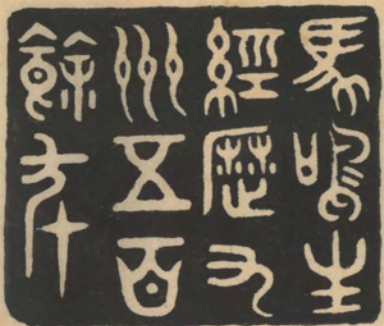 馬鳴生
經歷九
州五百
餘年